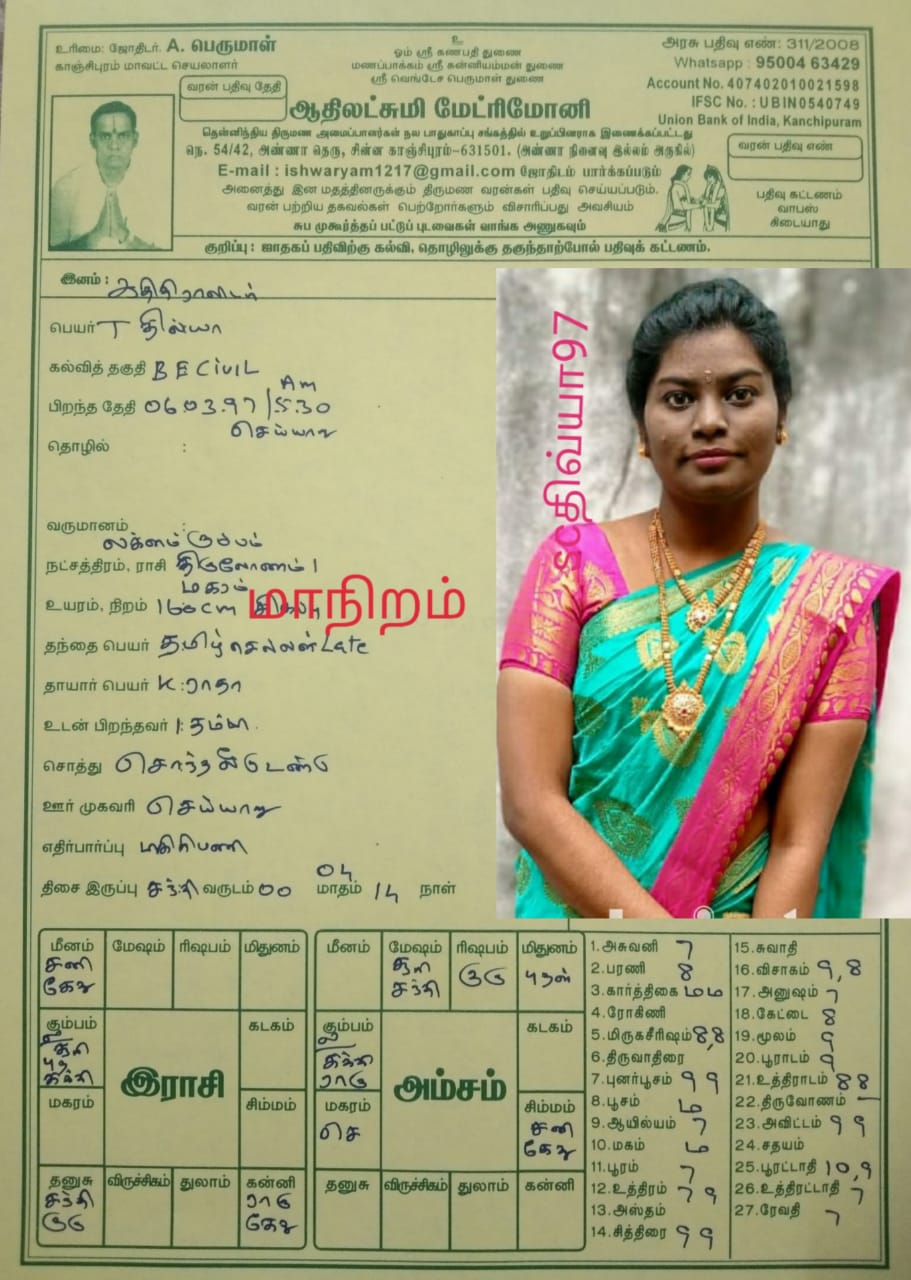 உரிமை: ஜோதிடர். A. பெருமாள்
காஞ்சிபுரம் மாவட்ட செயலாளர்
உ
ஓம் ஸ்ரீ கணபதி துணை
மணப்பாக்கம் ஸ்ரீ கன்னியம்மன் துணை
ஸ்ரீ வெங்டேச பெருமாள் துணை
அரசு பதிவு எண்: 311/2008
Whatsapp : 95004 63429
Account No. 407402010021598
IFSC No. : UBIN0540749
Union Bank of India, Kanchipuram
வரன் பதிவு தேதி
ஆதிலட்சுமி மேட்ரிமோனி
தென்னிந்திய திருமண அமைப்பாளர்கள் நல பாதுகாப்பு சங்கத்தில் உறுப்பினராக இணைக்கப்பட்டது
நெ. 54/42, அண்ணா தெரு, சின்ன காஞ்சிபுரம்-631501. (அண்ணா நினைவு இல்லம் அருகில்)
வரன் பதிவு எண்
E-mail : ishwaryam1217@gmail.com ஜோதிடம் பார்க்கப்படும்
அனைத்து இன மதத்தினருக்கும் திருமண வரன்கள் பதிவு செய்யப்படும்.
வரன் பற்றிய தகவல்கள் பெற்றோர்களும் விசாரிப்பது அவசியம்
சுப முகூர்த்தப் பட்டுப் புடவைகள் வாங்க அணுகவும்
பதிவு கட்டணம்
வாபஸ்
கிடையாது
குறிப்பு : ஜாதகப் பதிவிற்கு கல்வி, தொழிலுக்கு தகுந்தாற்போல் பதிவுக் கட்டணம்.
இனம் : ஆதிதிராவிடர்
பெயர் T திவ்யா
கல்வித் தகுதி B E CIVIL
பிறந்த தேதி 06 03.97 / 5.30 Am
செய்யாறு
தொழில் :
வருமானம் :
லக்னம் கும்பம்
நட்சத்திரம், ராசி திருவோணம் 1
மகரம்
உயரம், நிறம் 160 cm
மாநிறம்
தந்தை பெயர் தமிழ்செல்வன் Late
தாயார் பெயர் K ராதா
உடன் பிறந்தவர் 1 தம்பி
சொத்து சொந்த வீடு உண்டு
ஊர் முகவரி செய்யாறு
எதிர்பார்ப்பு
திசை இருப்பு சந்தி வருடம் 00 மாதம் 04 14 நாள்
திவ்யா97
மீனம் சனி கேது
மேஷம்
ரிஷபம்
மிதுனம்
கும்பம்
கடகம்
இராசி
மகரம்
சிம்மம்
தனுசு
விருச்சிகம்
துலாம்
கன்னி
மீனம்
மேஷம்
ரிஷபம் குரு
மிதுனம் புதன்
கும்பம்
கடகம்
அம்சம்
மகரம் செ
சிம்மம் சனி கேது
தனுசு
விருச்சிகம்
துலாம்
கன்னி
1.அசுவனி 7
2.பரணி 8
3.கார்த்திகை
4.ரோகிணி
5.மிருகசீரிஷம் 8,8
6.திருவாதிரை
7.புனர்பூசம் 9 9
8.பூசம்
9.ஆயில்யம் 7
10.மகம்
11.பூரம் 7
12.உத்திரம் 7 9
13.அஸ்தம்
14.சித்திரை 9 9
15.சுவாதி
16.விசாகம் 9,8
17.அனுஷம் 7
18.கேட்டை 8
19.மூலம் 9
20.பூராடம் 9
21.உத்திராடம் 8 8
22.திருவோணம் –
23.அவிட்டம் 9 9
24.சதயம்
25.பூரட்டாதி 10,9
26.உத்திரட்டாதி 7
27.ரேவதி 7